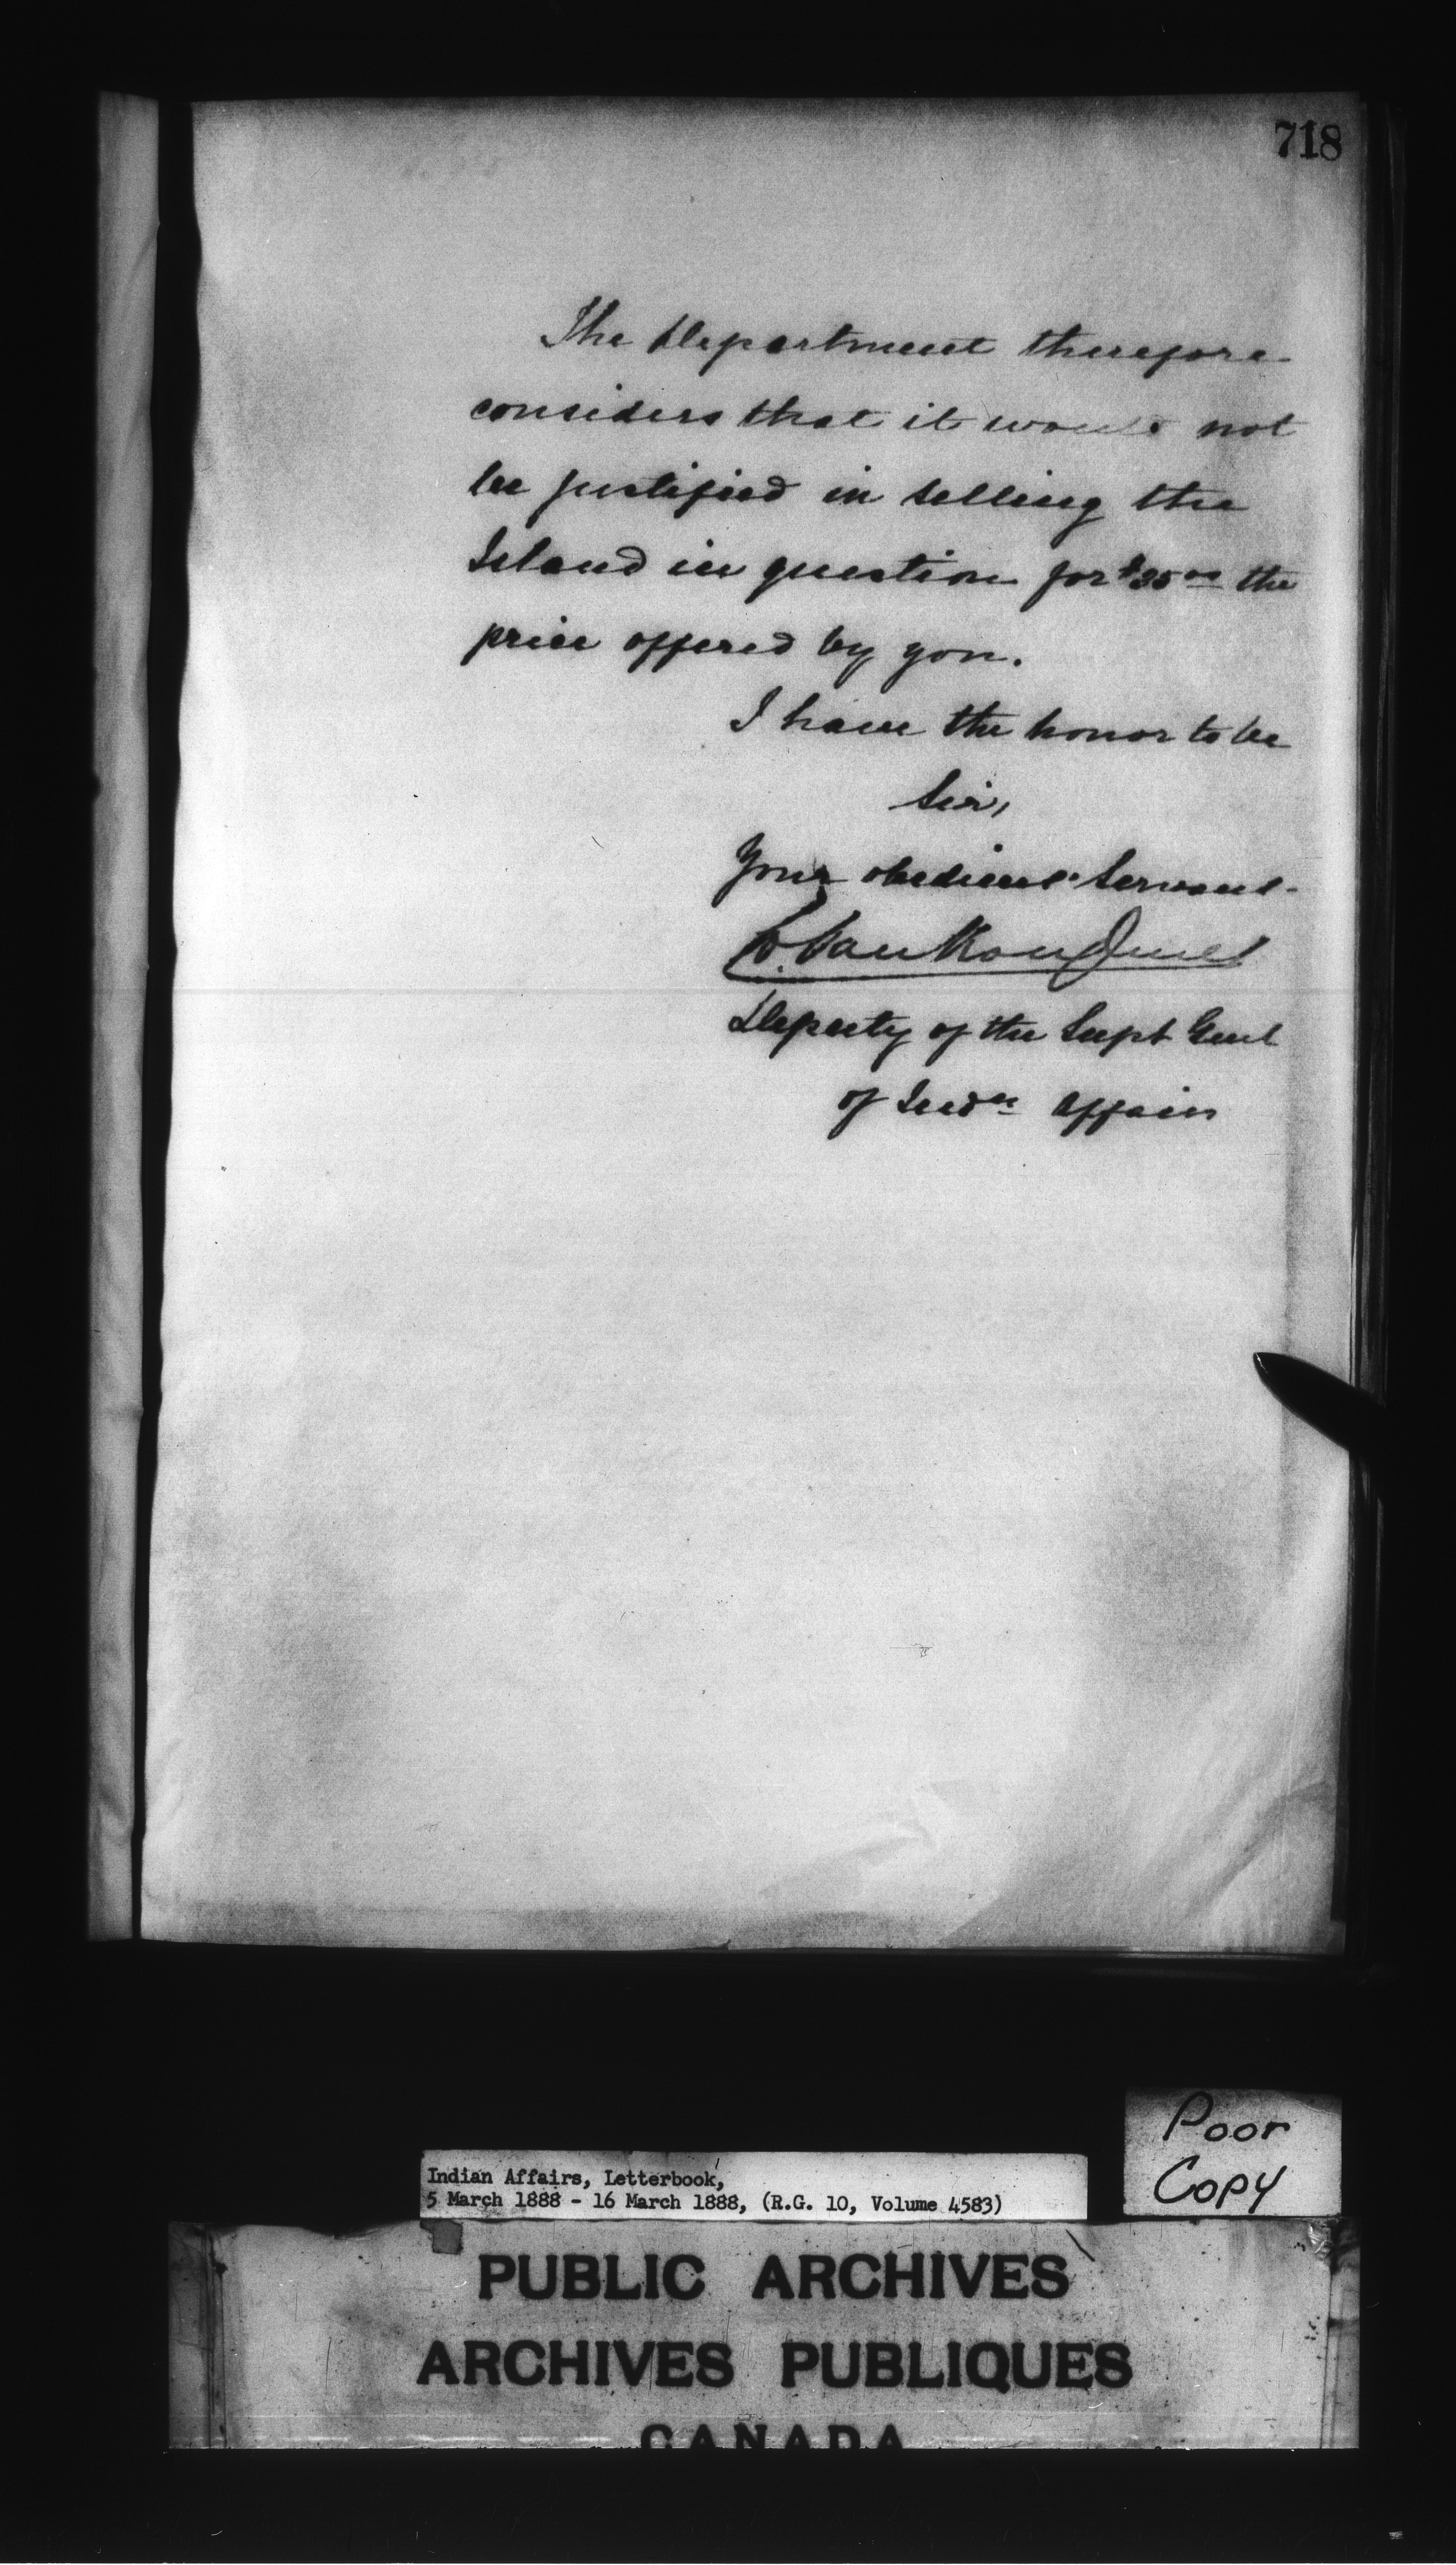 718
The Department therefore
considers that it would not
be justified in selling the
Island in question for $35.00 the
price offered by you.
I have the honor to be
Sir,
Your obedient Servant
L. VanKoughnet
Deputy of the Supt Genl
of Indn Affairs
Poor
Copy
Indian Affairs, Letterbook,
5 March 1888 - 16 March 1888, (R.G. 10, Volume 4583)
PUBLIC ARCHIVES
ARCHIVES PUBLIQUES
CANADA